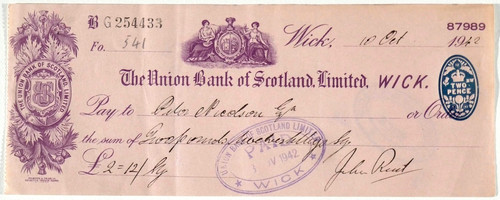 B G 254433
87989
Fo. 541
Wick, 10 Oct 1942
The Union Bank of Scotland, Limited, WICK.
THE UNION BANK OF SCOTLAND LIMITED
Pay to Nicolson or Order
TWO PENCE
the sum of Two pounds twelve shillings
UNION BANK OF SCOTLAND LIMITED
PAID
1942
WICK
£2=12/
John